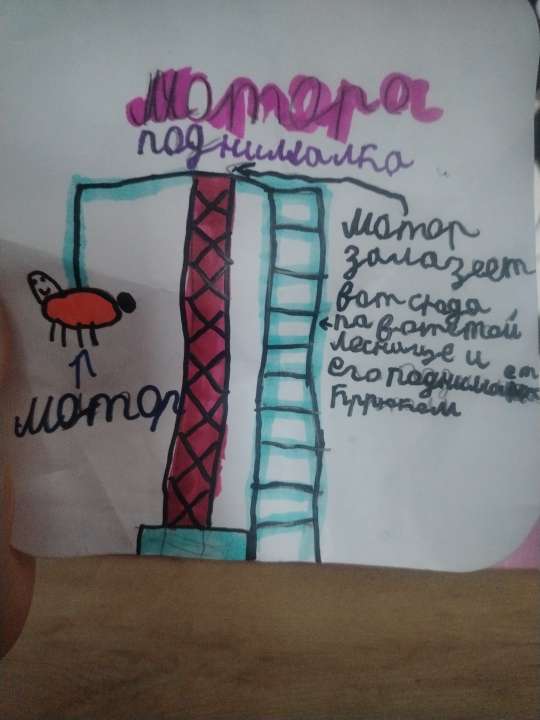 мотора
поднималка
мотор
залазеет
вот сюда
па вотетой
леснице и
его поднимает
крюком
мотор